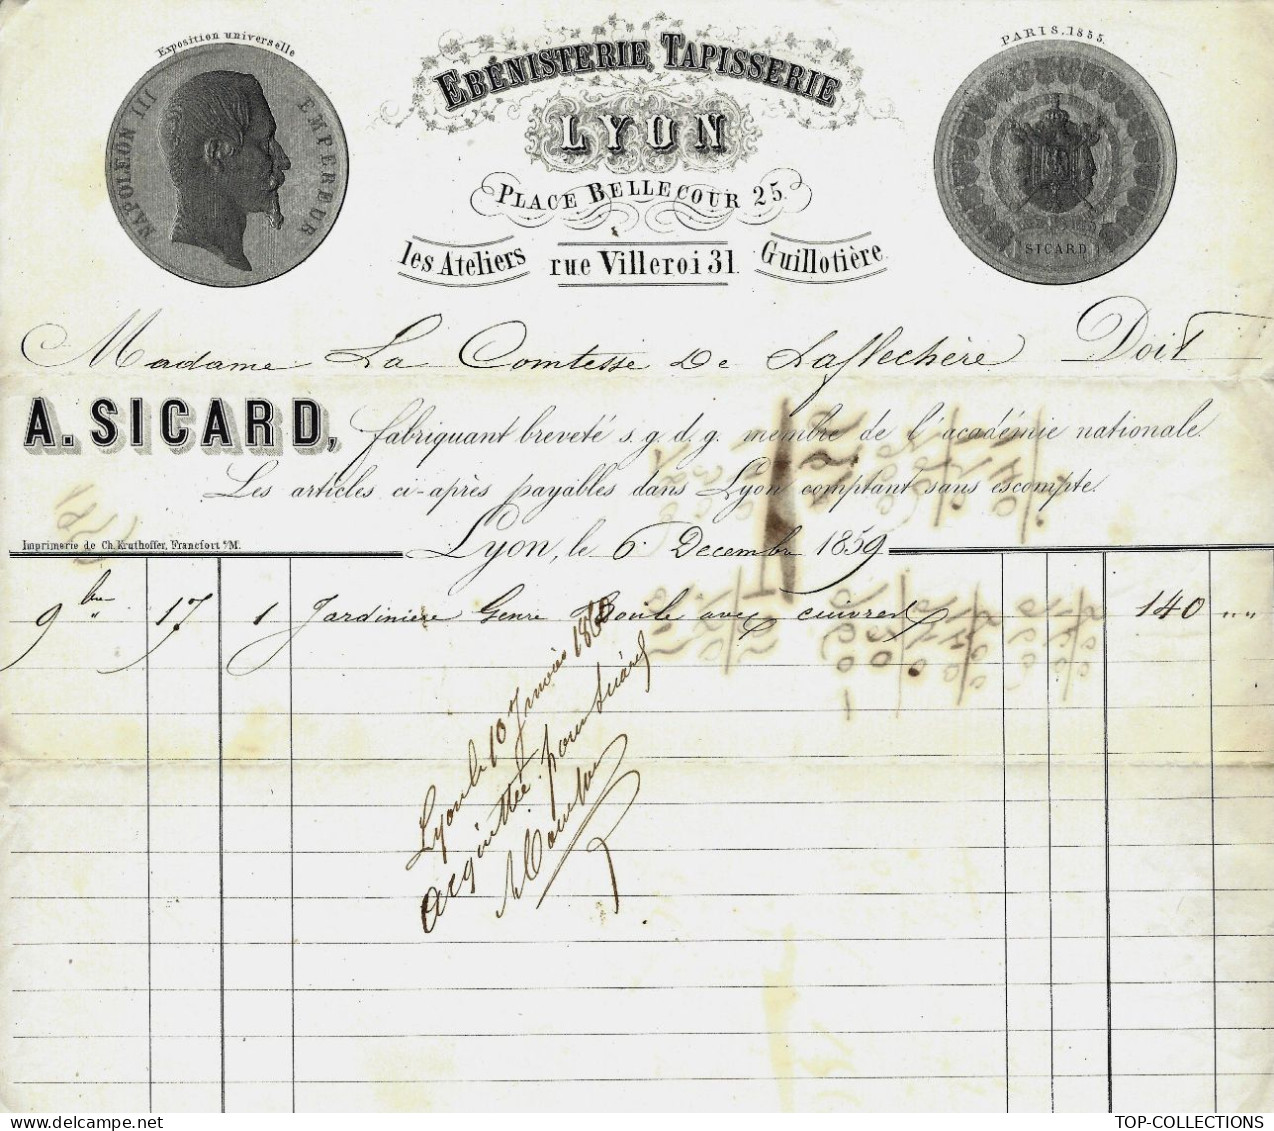 Exposition universelle
NAPOLEON III EMPEREUR
EBÉNISTERIE, TAPISSERIE
LYON
PLACE BELLECOUR 25.
les Ateliers rue Villeroi 31. Guillotière
PARIS. 1855.
SICARD
Madame La Comtesse De Laflechère Doit
A. SICARD, fabriquant breveté s. g. d. g. membre de l'académie nationale.
Les articles ci-après payables dans Lyon comptant sans escompte.
Imprimerie de Ch. Kruthoffer, Francfort s/M.
Lyon, le 6 Decembre 1859
9bre " 17 1 Jardinière Genre Boule avec cuivres 140 " "
Lyon le 10 Janvier 1860
acquittée pour Sicard